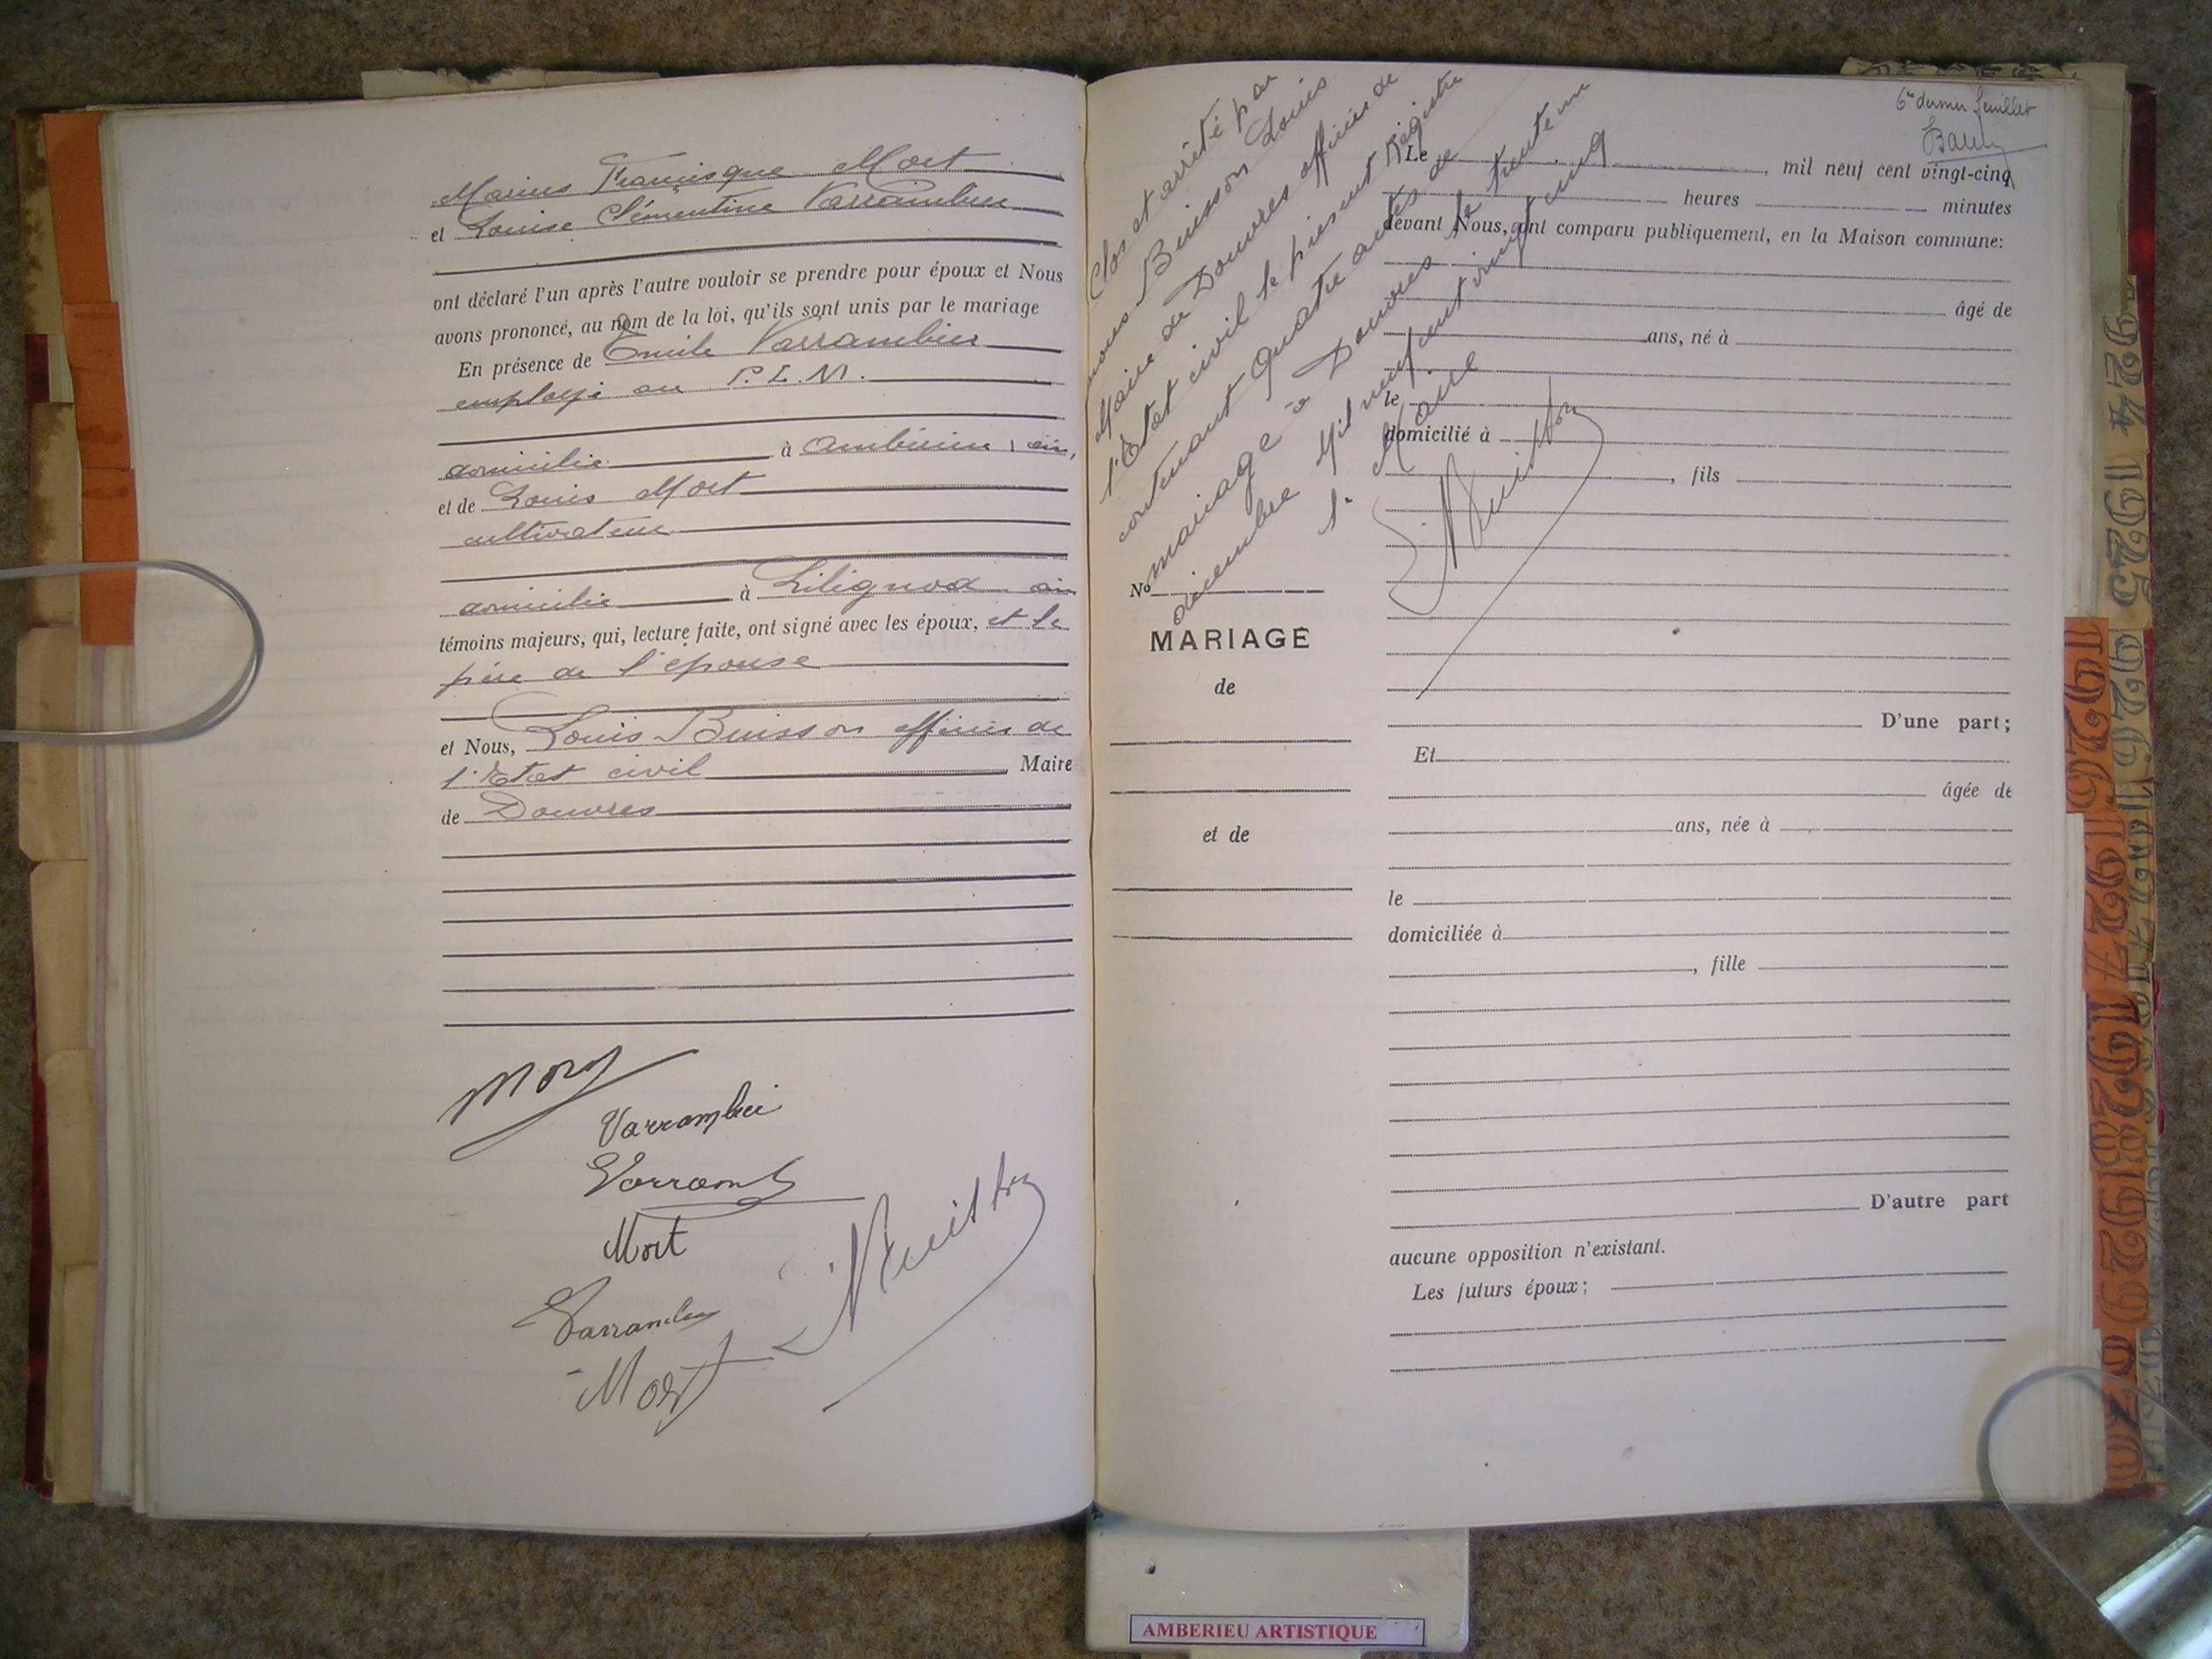 Marius Francisque Mort
et Louise Clémentine Varrambier
ont déclaré l'un après l'autre vouloir se prendre pour époux et Nous
avons prononcé, au nom de la loi, qu'ils sont unis par le mariage
En présence de Emile Varrambier
employé au P.L.M.
domicilié à Ambérieu, ain,
et de Louis Mort
cultivateur
domicilié à Lilignod ain
témoins majeurs, qui, lecture faite, ont signé avec les époux, et le
père de l'épouse
et Nous, Louis Buisson officier de
l'Etat civil Maire
de Douvres
Mort
Varrambier
Mort
Varrambier
Mort
L. Buisson
Clos et arrêté par
nous Buisson Louis
Maire de Douvres officier de
l'Etat civil le présent Registre
contenant quatre actes de
mariage à Douvres le trente un
décembre Mil neuf cent vingt cinq
le Maire
L. Buisson
6e dernier feuillet
Le , mil neuf cent vingt-cinq
heures minutes
devant Nous, ont comparu publiquement, en la Maison commune:
âgé de
ans, né à
le
domicilié à
, fils
No
MARIAGE
de
et de
D'une part;
Et
âgée de
ans, née à
le
domiciliée à
, fille
D'autre part
aucune opposition n'existant.
Les futurs époux;
1924 1925 1926
1926 1927 1928 1929
AMBERIEU ARTISTIQUE